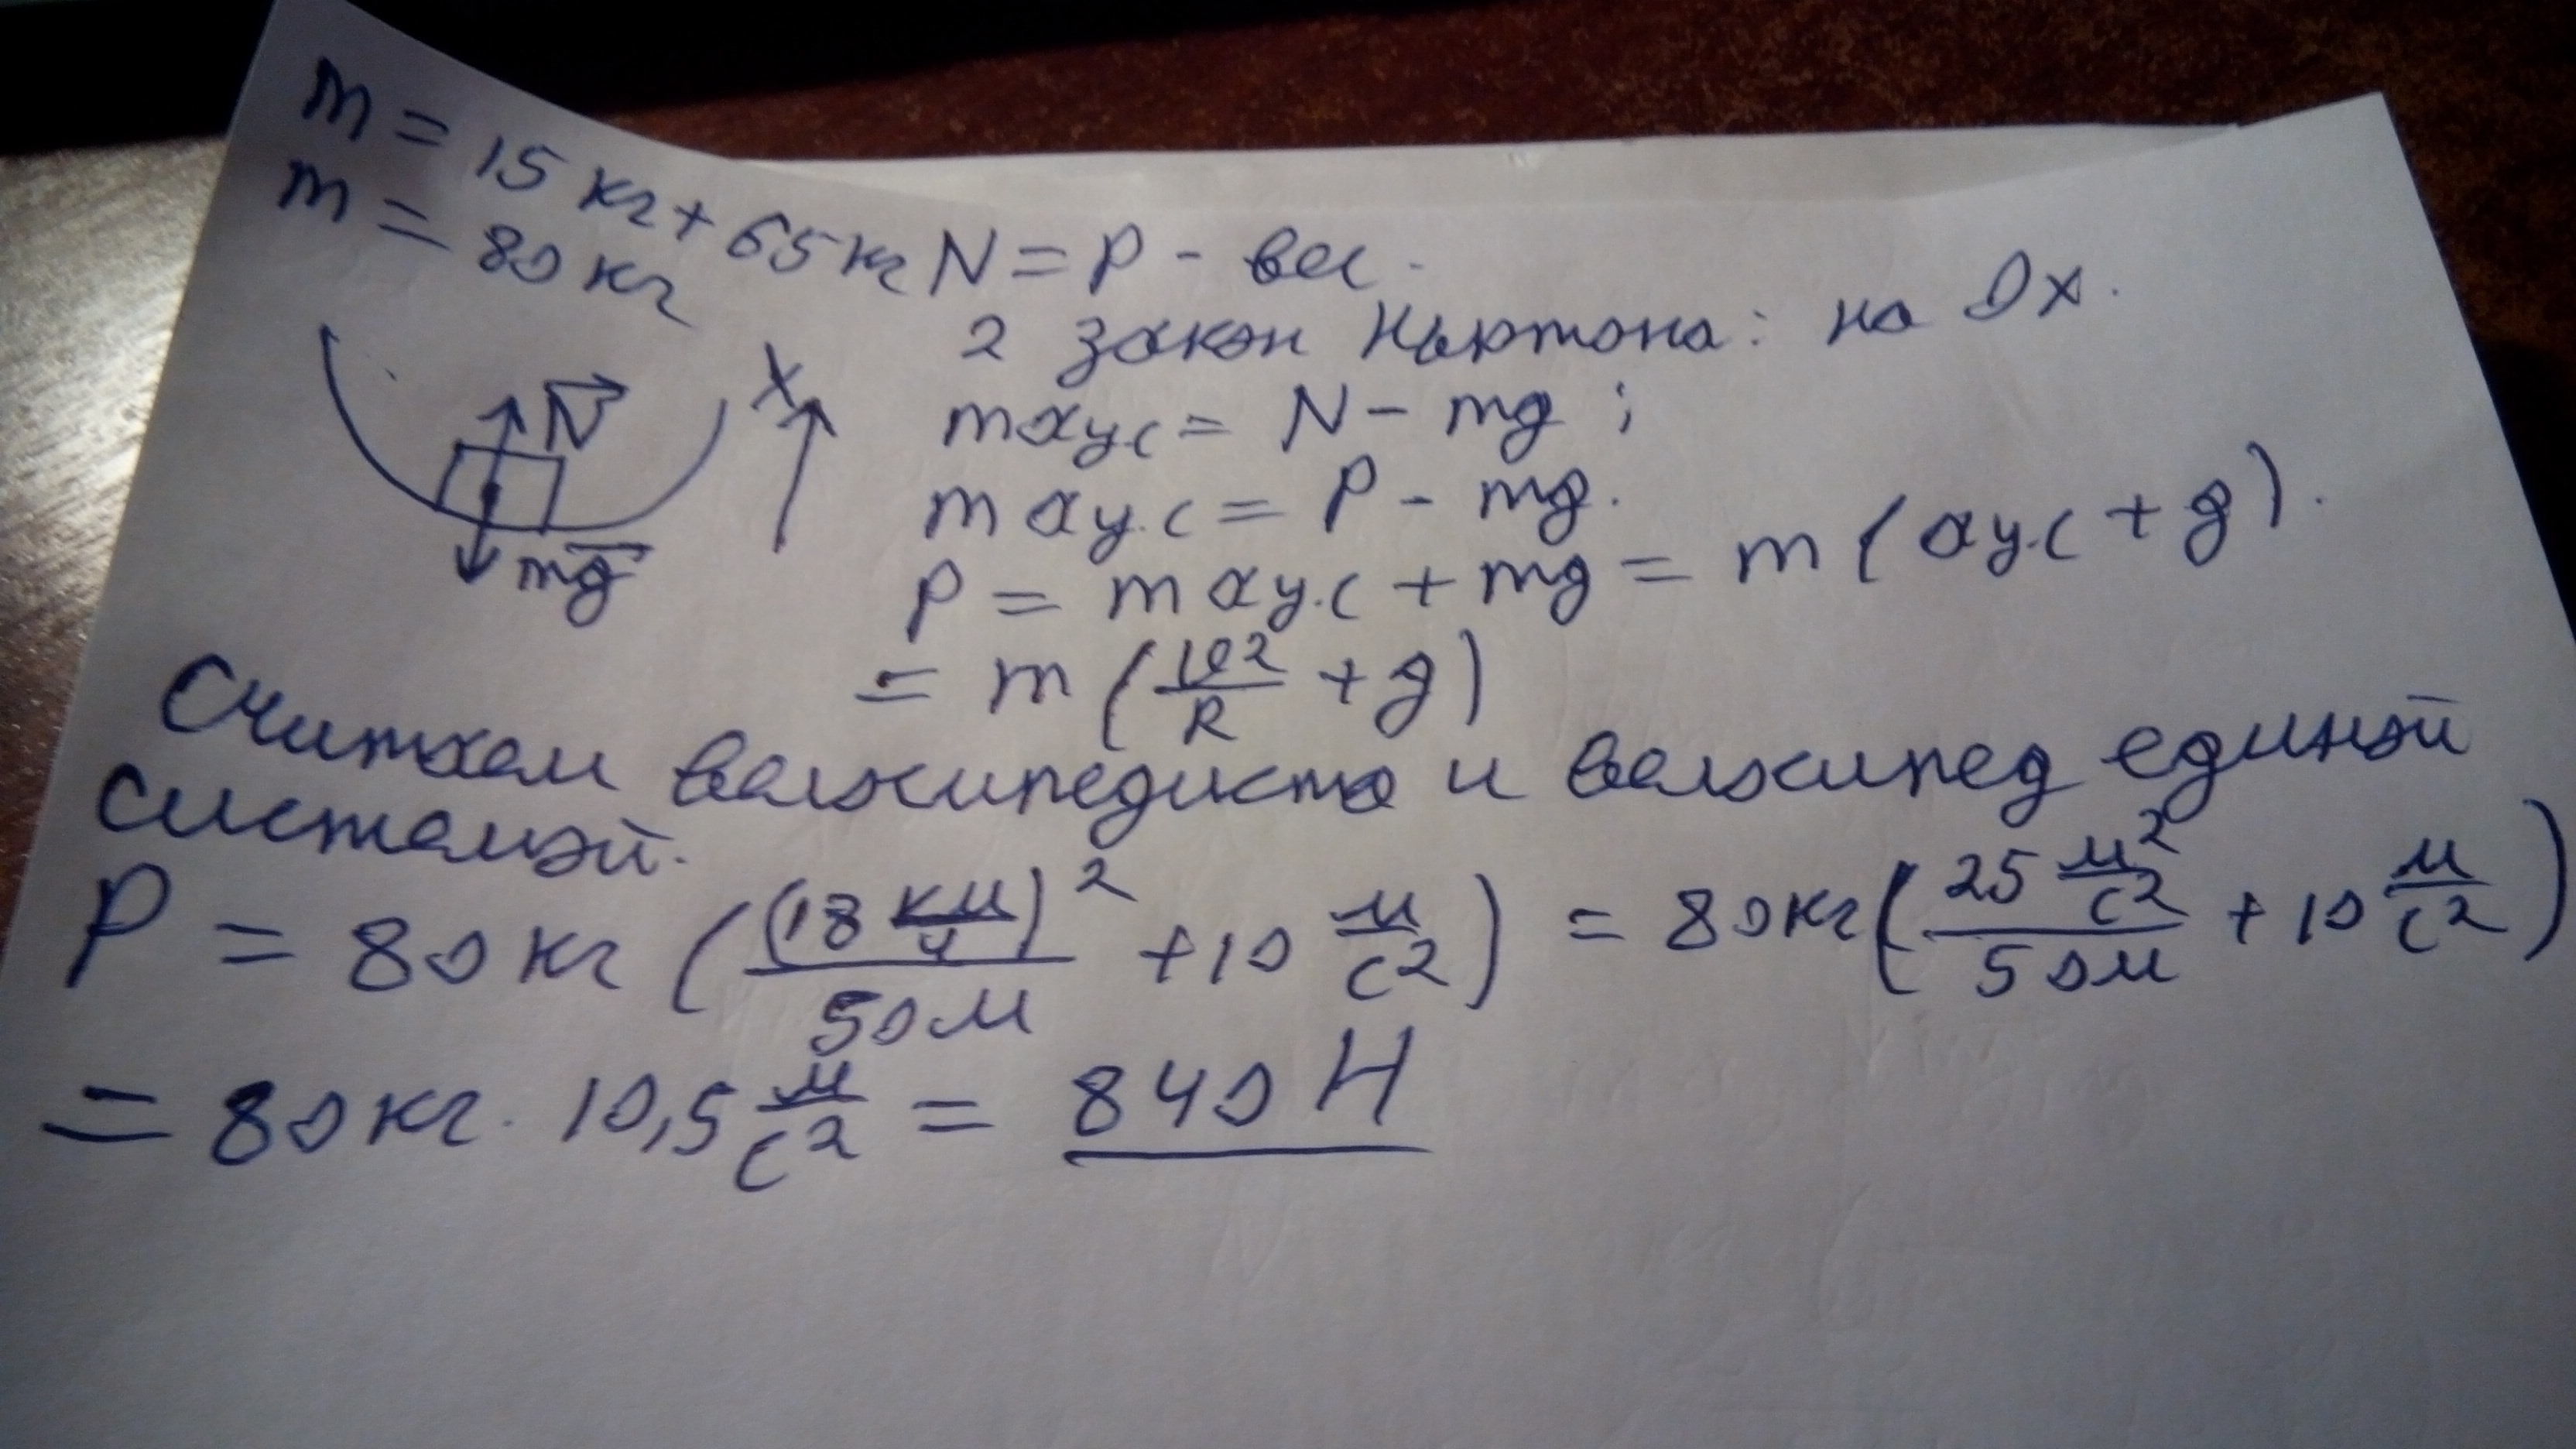 m = 15 кг + 65 кг
m = 80 кг
N = P - вес.
2 закон Ньютона: на Ox.
X
N
mg
maу.с = N - mg ;
m aу.с = P - mg.
P = m aу.с + mg = m ( aу.с + g ).
= m ( υ²/R + g )
Считаем велосипедиста и велосипед единой
системой.
P = 80 кг ( (18 км/ч)²/50м + 10 м/с² ) = 80кг ( 25 м²/с² / 50м + 10 м/с² )
= 80 кг. 10,5 м/с² = 840 Н